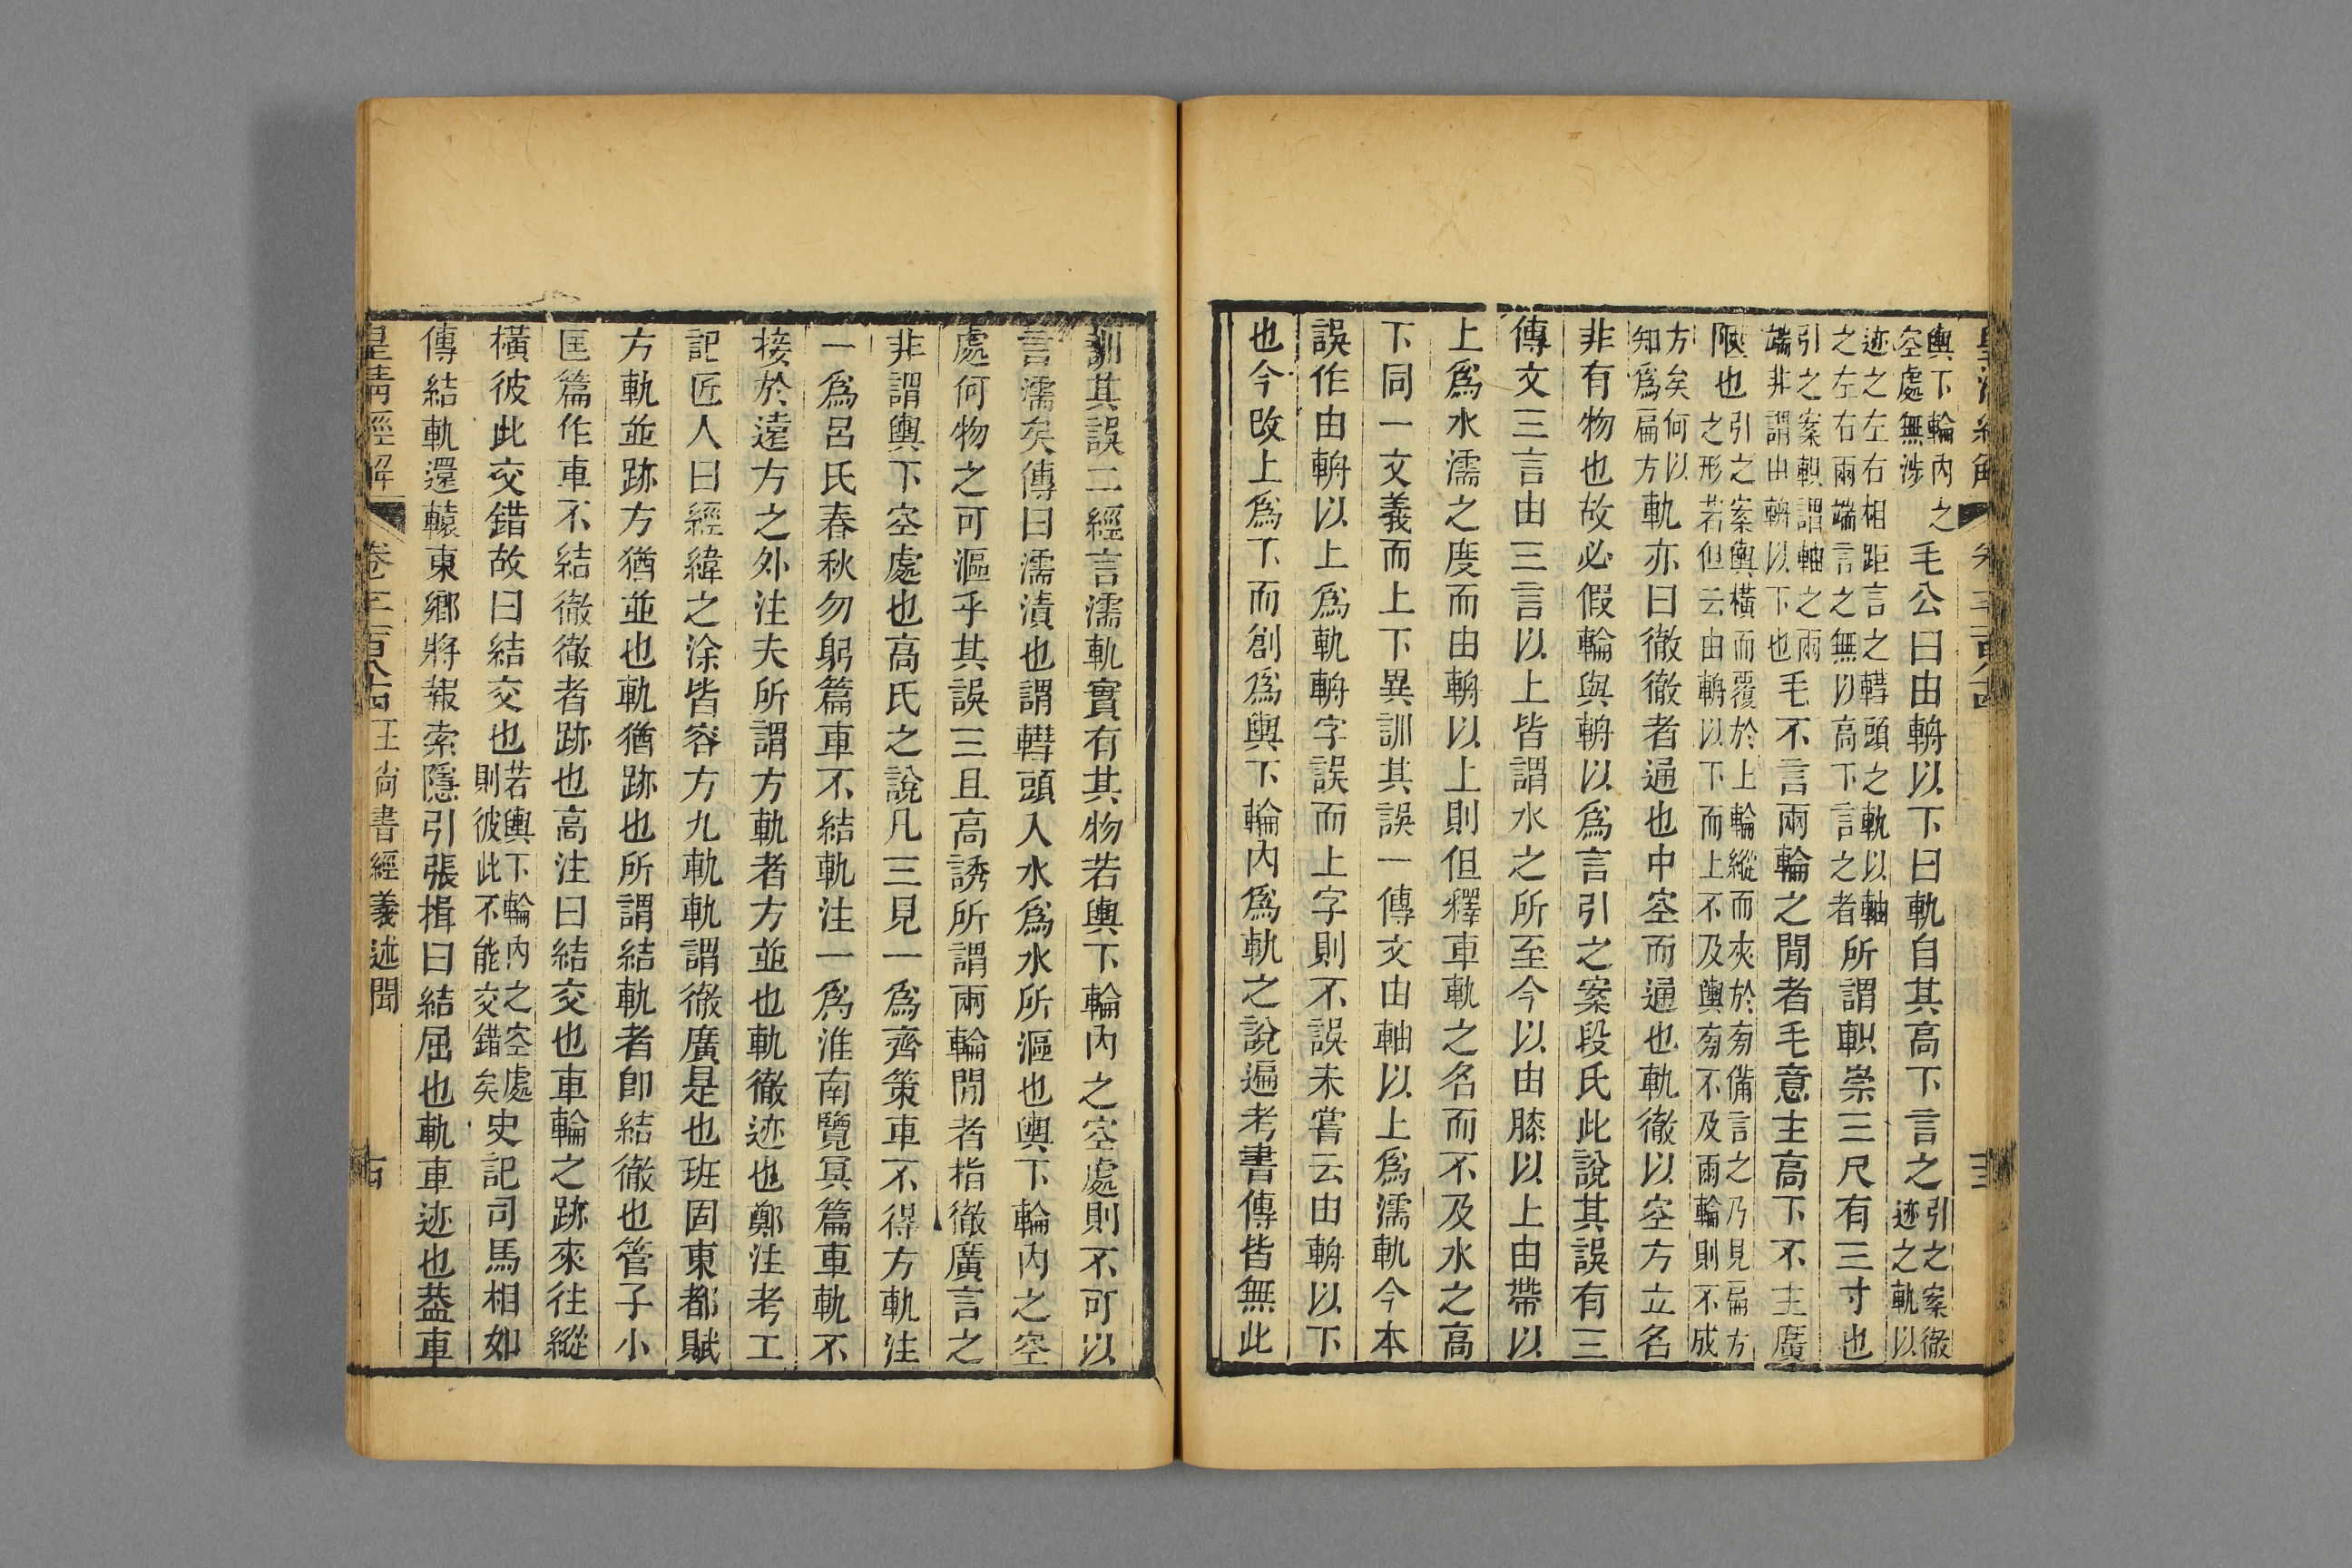 輿下輪內之
空處無涉
毛公曰由輈以下曰軌自其高下言之
引之案徹
迹之軌以
迹之左右相距言之轊頭之軌以軸
之左右兩端言之無以高下言之者
所謂軹崇三尺有三寸也
引之案軹謂軸之兩
端非謂由輈以下也
毛不言兩輪之閒者毛意主高下不主廣
陿也
引之案輿橫而覆於上輪縱而夾於旁備言之乃見扁方
之形若但云由輈以下而上不及輿旁不及兩輪則不成
方矣何以
知爲扁方
軌亦曰徹徹者通也中空而通也軌徹以空方立名
非有物也故必假輪與輈以爲言引之案段氏此說其誤有三
傳文三言由三言以上皆謂水之所至今以由膝以上由帶以
上爲水濡之度而由輈以上則但釋車軌之名而不及水之高
下同一文義而上下異訓其誤一傳文由軸以上爲濡軌今本
誤作由輈以上爲軌輈字誤而上字則不誤未嘗云由輈以下
也今改上爲下而創爲輿下輪內爲軌之說遍考書傳皆無此
訓其誤二經言濡軌實有其物若輿下輪內之空處則不可以
言濡矣傳曰濡漬也謂轊頭入水爲水所漚也輿下輪內之空
處何物之可漚乎其誤三且高誘所謂兩輪閒者指徹廣言之
非謂輿下空處也高氏之說凡三見一爲齊策車不得方軌注
一爲呂氏春秋勿躬篇車不結軌注一爲淮南覽冥篇車軌不
接於遠方之外注夫所謂方軌者方並也軌徹迹也鄭注考工
記匠人曰經緯之涂皆容方九軌軌謂徹廣是也班固東都賦
方軌並跡方猶並也軌猶跡也所謂結軌者卽結徹也管子小
匡篇作車不結徹徹者跡也高注曰結交也車輪之跡來往縱
橫彼此交錯故曰結交也
若輿下輪內之空處
則彼此不能交錯矣
史記司馬相如
傳結軌還轅東鄉將報索隱引張揖曰結屈也軌車迹也葢車
皇清經解
卷千一百八十四
王尚書經義述聞